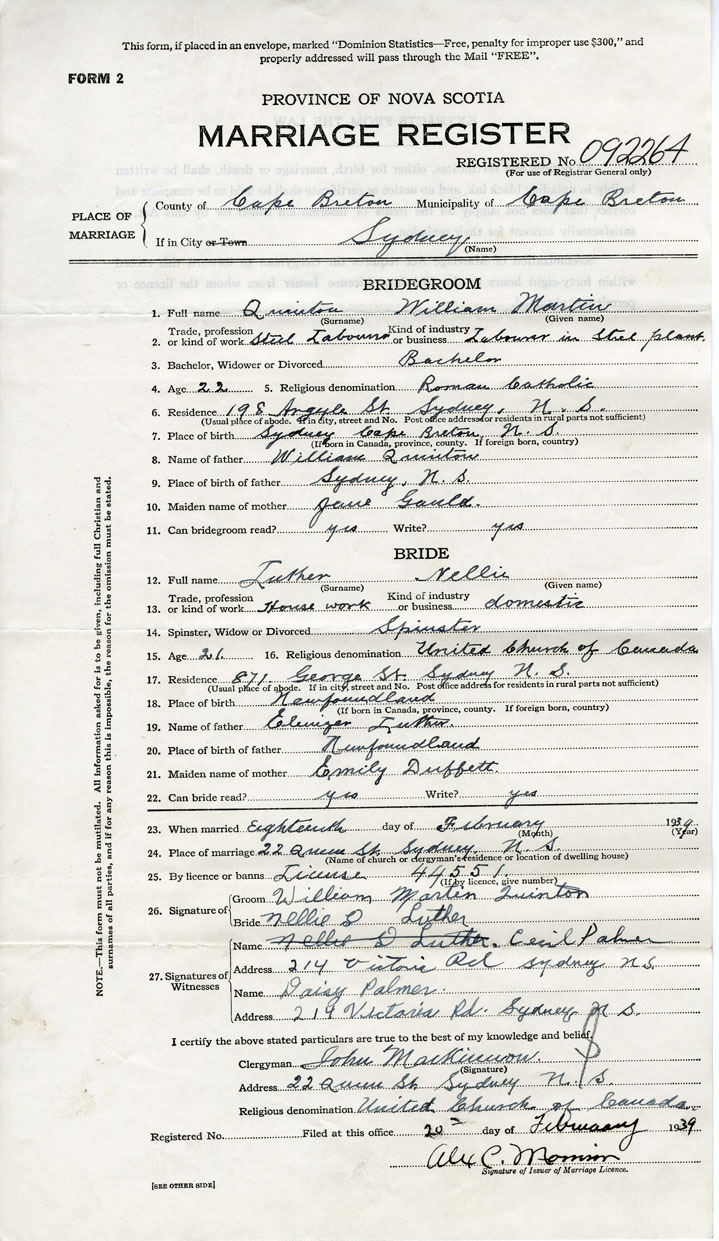 This form, if placed in an envelope, marked "Dominion Statistics—Free, penalty for improper use $300," and
properly addressed will pass through the Mail "FREE".
FORM 2
PROVINCE OF NOVA SCOTIA
MARRIAGE REGISTER
REGISTERED No 092264
(For use of Registrar General only)
PLACE OF MARRIAGE
County of Cape Breton Municipality of Cape Breton
If in City or Town Sydney
(Name)
BRIDEGROOM
1. Full name Quinton William Martin
(Surname) (Given name)
2. Trade, profession or kind of work Steel Labourer Kind of industry or business Labourer in Steel plant
3. Bachelor, Widower or Divorced Bachelor
4. Age 22 5. Religious denomination Roman Catholic
6. Residence 198 Argyle St. Sydney, N. S.
(Usual place of abode. If in city, street and No. Post office address for residents in rural parts not sufficient)
7. Place of birth Sydney Cape Breton, N. S.
(If born in Canada, province, county. If foreign born, country)
8. Name of father William Quinton
9. Place of birth of father Sydney, N. S.
10. Maiden name of mother Jane Gauld.
11. Can bridegroom read? yes Write? yes
BRIDE
12. Full name Luther Nellie
(Surname) (Given name)
13. Trade, profession or kind of work House work Kind of industry or business domestic
14. Spinster, Widow or Divorced Spinster
15. Age 21 16. Religious denomination United Church of Canada
17. Residence 871 George St. Sydney N. S.
(Usual place of abode. If in city, street and No. Post office address for residents in rural parts not sufficient)
18. Place of birth Newfoundland
(If born in Canada, province, county. If foreign born, country)
19. Name of father Ebenizer Luther.
20. Place of birth of father Newfoundland
21. Maiden name of mother Emily Duffett.
22. Can bride read? yes Write? yes
23. When married Eighteenth day of February 1939.
(Month) (Year)
24. Place of marriage 22 Queen St. Sydney. N. S.
(Name of church or clergyman's residence or location of dwelling house)
25. By licence or banns License 44551.
(If by licence, give number)
26. Signature of
Groom William Martin Quinton
Bride Nellie D Luther
27. Signatures of Witnesses
Name Nellie D Luther. Cecil Palmer
Address 214 Victoria Rd Sydney N.S.
Name Daisy Palmer.
Address 219 Victoria Rd. Sydney N S.
I certify the above stated particulars are true to the best of my knowledge and belief.
Clergyman John MacKinnon.
(Signature)
Address 22 Queen St. Sydney N. S.
Religious denomination United Church of Canada.
Registered No. Filed at this office 20 day of February 1939
Alex C.
Signature of Issuer of Marriage Licence.
[SEE OTHER SIDE]
NOTE.—This form must not be mutilated. All Information asked for is to be given, including full Christian and
surnames of all parties, and if for any reason this is impossible, the reason for the omission must be stated.